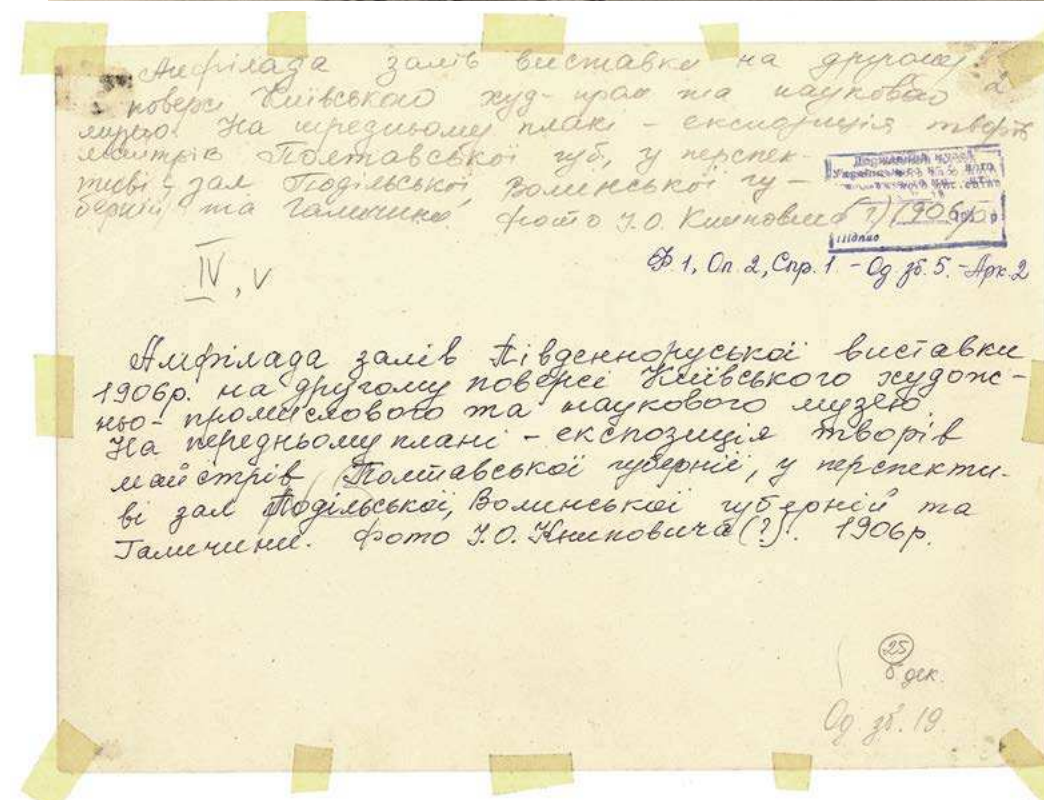 Анфілада залів виставки на другому
поверсі Київського худ-пром та наукового 2
музею. На середньому плані - експозиція творів
майстрів Полтавської губ, у перспек-
тиві зал Подільської, Волинської гу-
берній та Галичини. Фото І.О. Книповича (?) 1906р.
Державний музей
Підпис
IV, V
Ф 1, Оп. 2, Спр. 1 - Од зб. 5. - Арк. 2
Анфілада залів Південноруської виставки
1906р. на другому поверсі Київського худож-
ньо-промислового та наукового музею.
На передньому плані - експозиція творів
майстрів Полтавської губернії, у перспекти-
ві зал Подільської, Волинської губерній та
Галичини. Фото І.О. Книповича (?). 1906р.
25
б дек.
Од зб. 19.